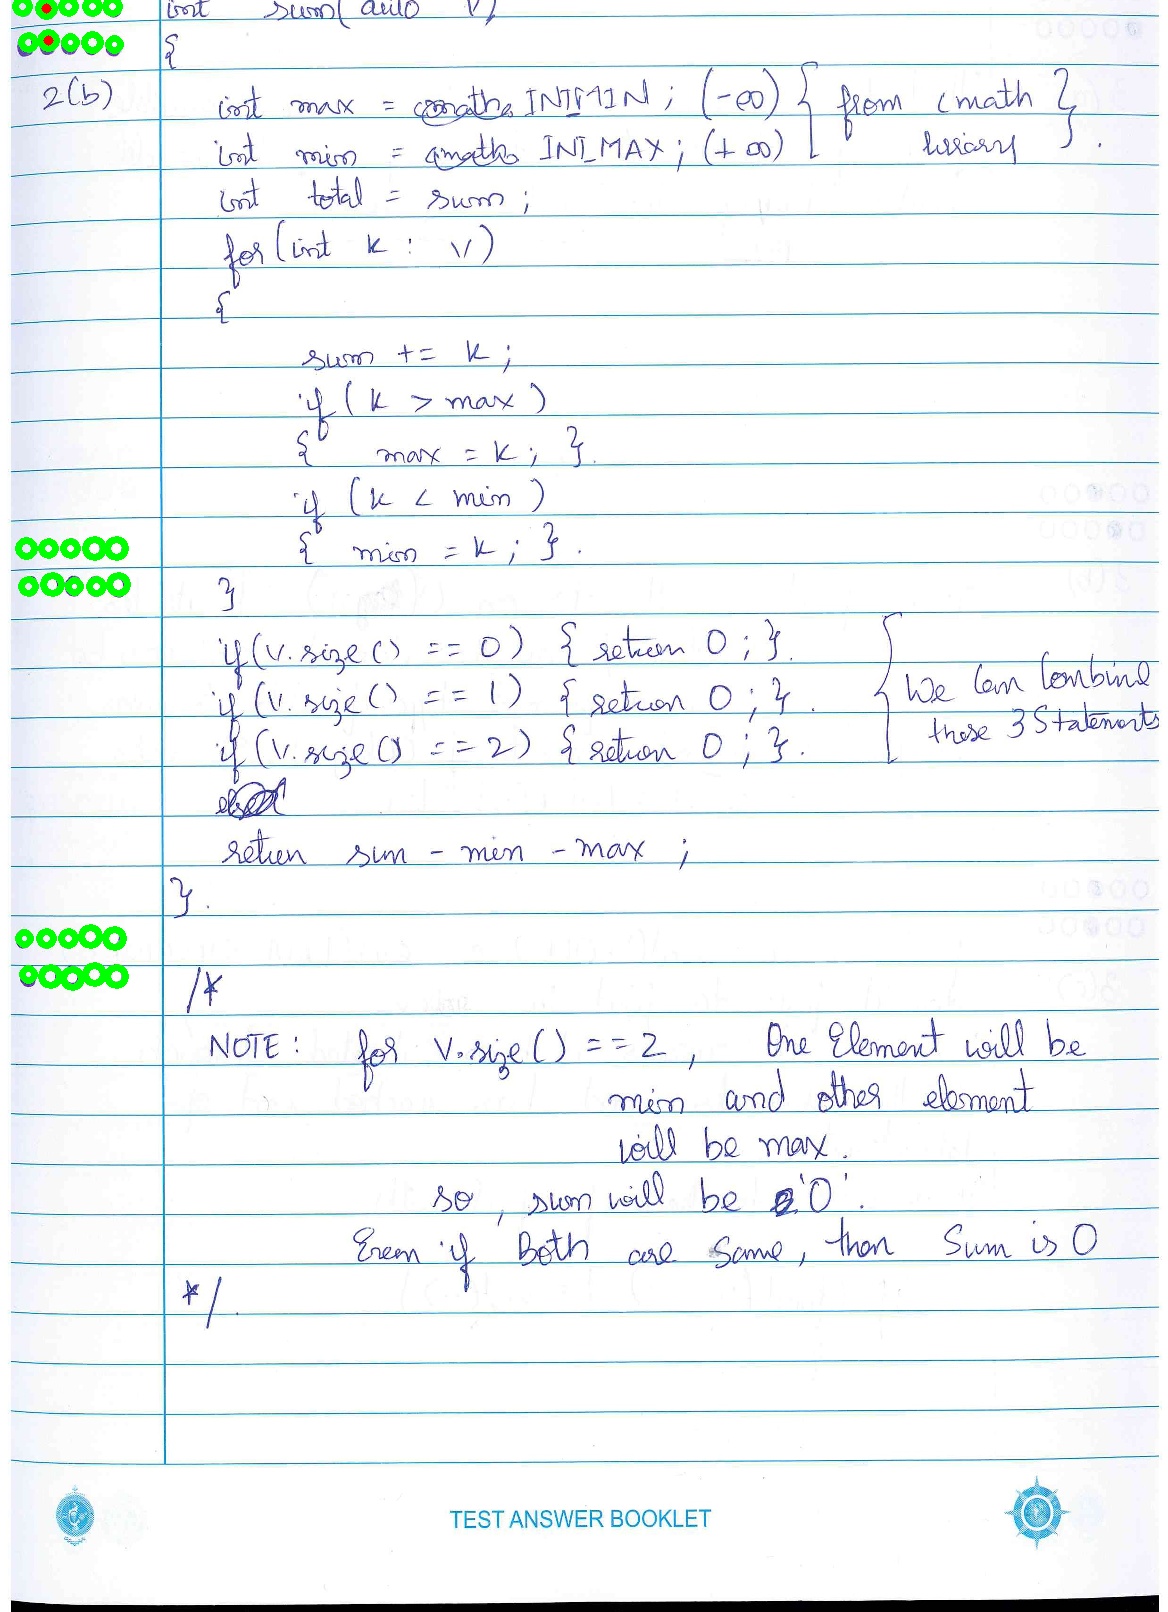 int sum(auto v)
{
2(b)
int max = INT_MIN; (-∞) { from cmath }
int min = INT_MAX; (+∞) library .
int total = sum;
for(int k : v)
{
sum += k;
if(k > max)
{ max = k; }.
if (k < min)
{ min = k; }.
}
if(v.size() == 0) { return 0; }.
if(v.size() == 1) { return 0; }. { We can combine
if(v.size() == 2) { return 0; }. these 3 Statements
return sum - min - max ;
}.
/*
NOTE: for v.size() == 2, One Element will be
min and other element
will be max.
so, sum will be '0'.
Even if Both are same, then Sum is 0
*/.
TEST ANSWER BOOKLET